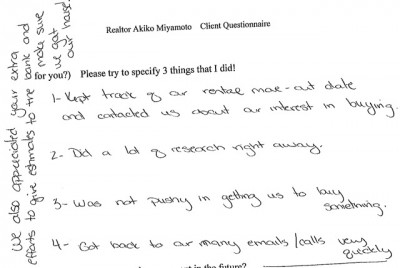 Realtor Akiko Miyamoto Client Questionnaire
for you?) Please try to specify 3 things that I did!
1- Kept track of our rental move-out date
and contacted us about our interest in buying.
2- Did a lot of research right away.
3- Was not pushy in getting us to buy
something.
4- Got back to our many emails/calls very
quickly
in the future?
We also appreciated your extra
efforts to give estimates to the bank and
make sure
we got
our house!